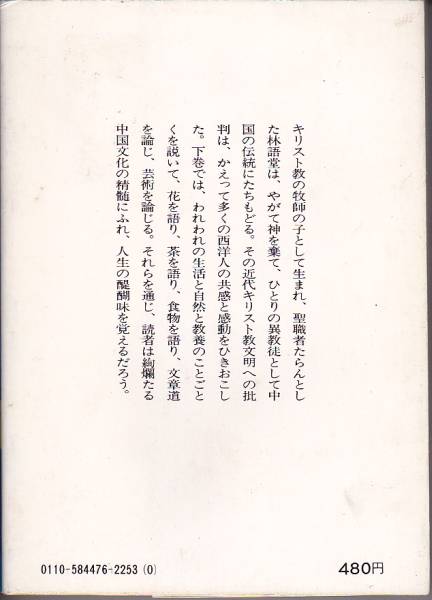 キリスト教の牧師の子として生まれ、聖職者たらんとし
た林語堂は、やがて神を棄て、ひとりの異教徒として中
国の伝統にたちもどる。その近代キリスト教文明への批
判は、かえって多くの西洋人の共感と感動をひきおこし
た。下巻では、われわれの生活と自然と教養のことごと
くを説いて、花を語り、茶を語り、食物を語り、文章道
を論じ、芸術を論じる。それらを通じ、読者は絢爛たる
中国文化の精髄にふれ、人生の醍醐味を覚えるだろう。
0110-584476-2253(0)
480円